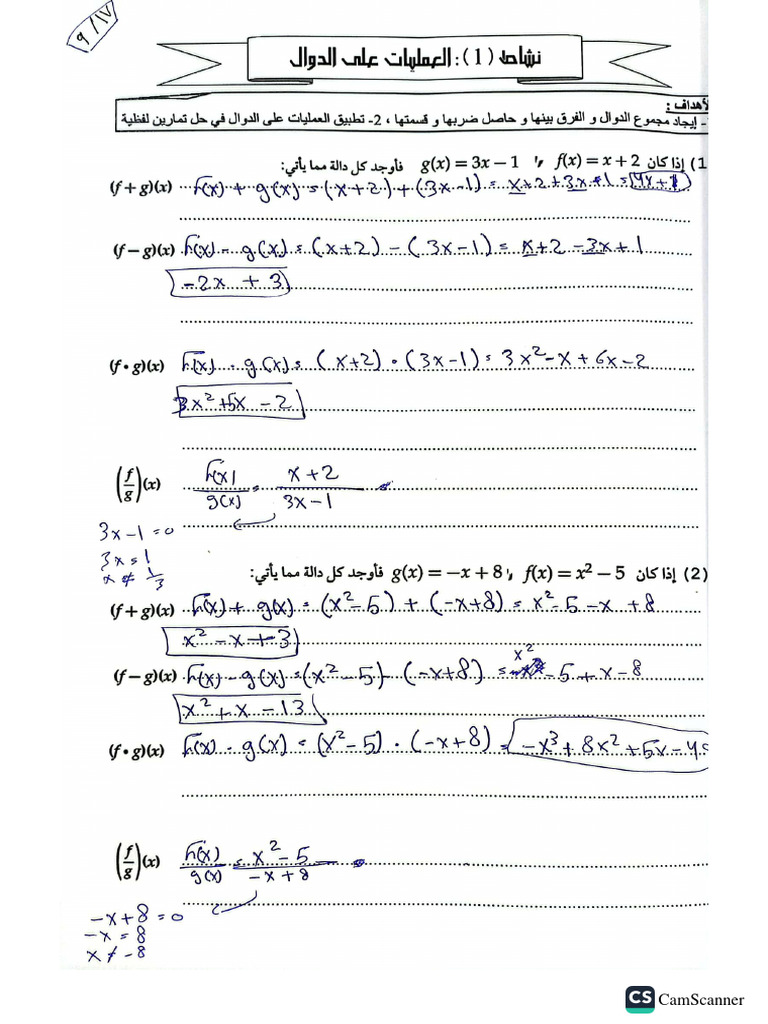 9/17
نشاط (1): العمليات على الدوال
لأهداف :
- إيجاد مجموع الدوال و الفرق بينها و حاصل ضربها و قسمتها ، 2- تطبيق العمليات على الدوال في حل تمارين لفظية
1) إذا كان f(x) = x + 2 و g(x) = 3x − 1 فأوجد كل دالة مما يأتي:
(f + g)(x) f(x) + g(x) = (x+2) + (3x-1) = x+2+3x-1 = 4x+1
(f − g)(x) f(x) - g(x) = (x+2) - (3x-1) = x+2-3x+1
-2x + 3
(f • g)(x) f(x) - g(x) = (x+2) • (3x-1) = 3x²-x+6x-2
3x²+5x-2
(f/g)(x) f(x)/g(x) = x+2/3x-1
3x-1=0
3x=1
x≠1/3
2) إذا كان f(x) = x² − 5 و g(x) = −x + 8 فأوجد كل دالة مما يأتي:
(f + g)(x) f(x) + g(x) = (x²-5) + (-x+8) = x²-5-x+8
x²-x+3
(f − g)(x) f(x) - g(x) = (x²-5) - (-x+8) = x²-5+x-8
x²+x-13
(f • g)(x) f(x) - g(x) = (x²-5) • (-x+8) = -x³+8x²+5x-4
(f/g)(x) f(x)/g(x) = x²-5/-x+8
-x+8=0
-x=8
x≠-8
CS CamScanner